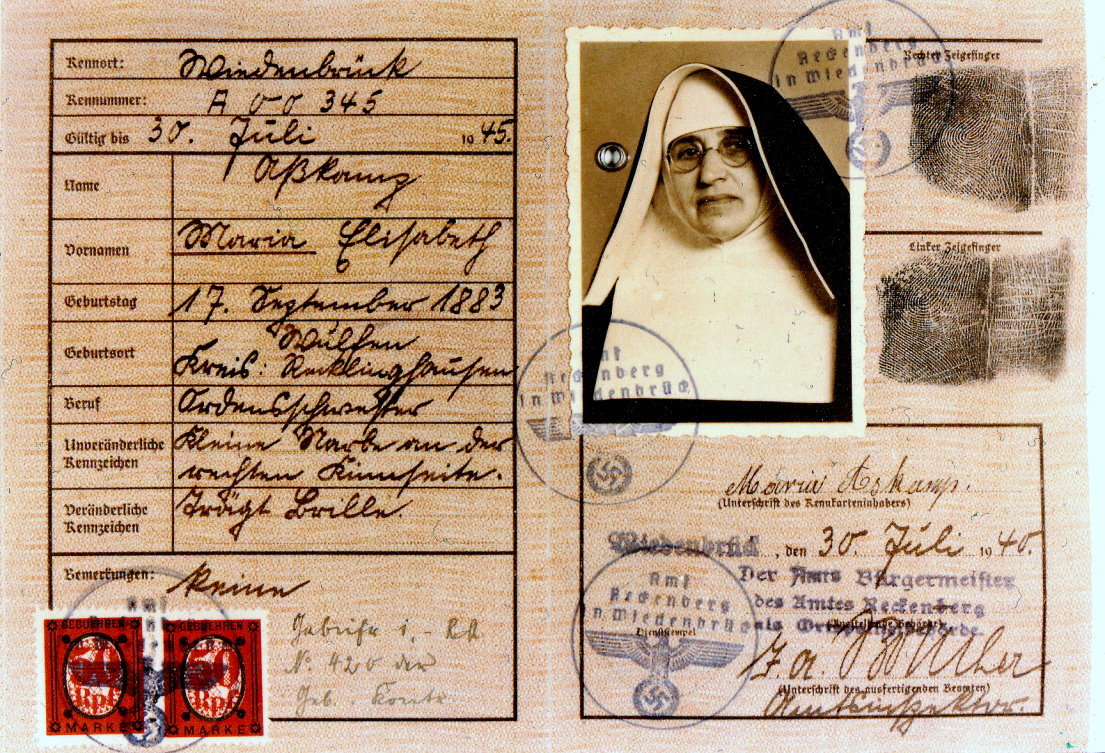 Kennort: Wiedenbrück
Kennummer: A 00 345
Gültig bis 30. Juli 1945.
Name Aßkamp
Vornamen Maria Elisabeth
Geburtstag 17. September 1883
Geburtsort Wulfen
Kreis: Recklinghausen
Beruf Ordensschwester
Unveränderliche Kennzeichen Kleine Narbe an der
rechten Kinnseite.
Veränderliche Kennzeichen Trägt Brille.
Bemerkungen: keine
GEBÜHREN GEBÜHREN
50 Rpf 50 Rpf
MARKE MARKE
Amt
Reckenberg
in Wiedenbrück
Rechter Zeigefinger
Linker Zeigefinger
Amt
Reckenberg
in Wiedenbrück
Maria Askamp.
(Unterschrift des Kennkarteninhabers)
Wiedenbrück, den 30. Juli 1940.
Der Amts Bürgermeister
des Amtes Reckenberg
als Ortspolizeibehörde
(Ausstellende Behörde)
Amt
Reckenberg
in Wiedenbrück
Dienststempel
J. A.
(Unterschrift des ausfertigenden Beamten)
Amtsinspektor.